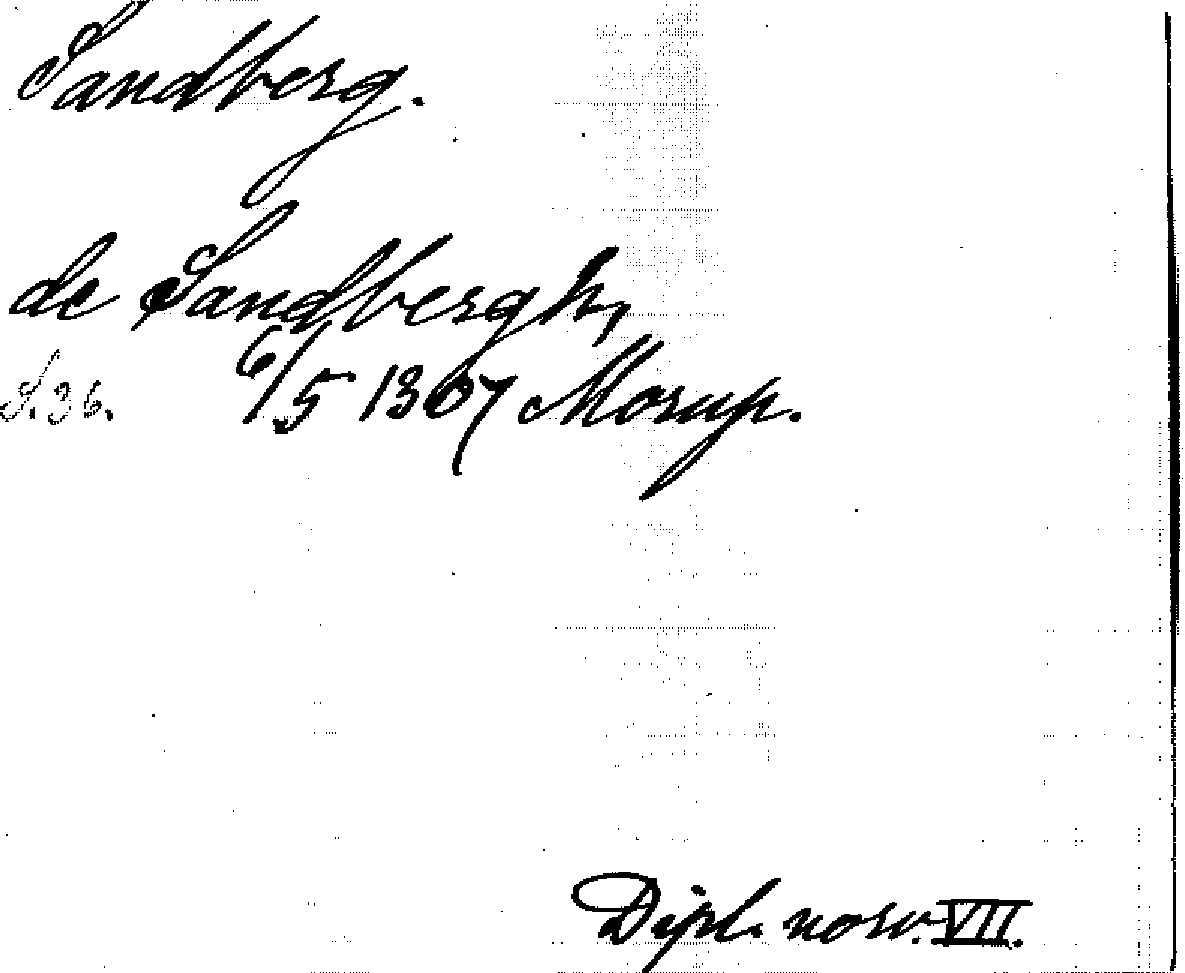 Sandberg.
de Sandbergh,
S. 36. 6/5 1307 Morup.
Dipl. norv. VII.